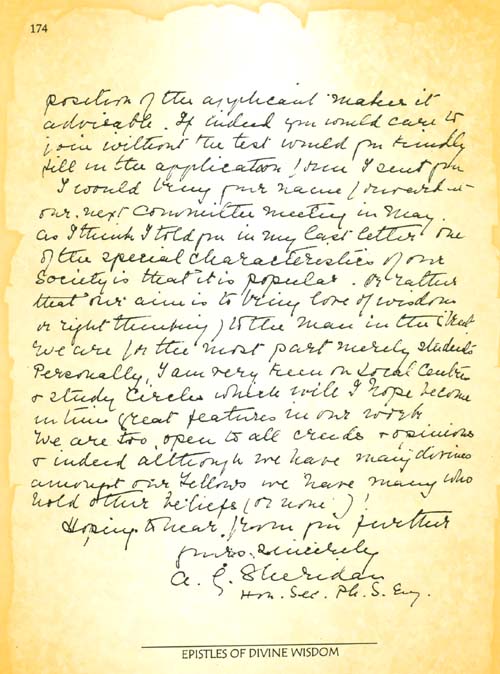 174
position of the applicant makes it
advisable. If indeed you would care to
join without the test would you kindly
fill in the application form I sent you
I would bring your name forward at
our next Committee meeting in May.
As I think I told you in my last letter one
of the special characteristics of our
Society is that it is popular. Or rather
that our aim is to bring love of wisdom
or right thinking) to the man in the Street
We are for the most part merely students
Personally, I am very keen on Local Centres
& Study Circles which will I hope become
in time great features in our work
We are too, open to all creeds & opinions
& indeed although we have many divines
amongst our Fellows we have many who
hold other beliefs (or none)!
Hoping to hear from you further
yours sincerely
A. G. Sheridan
Hon. Sec. Ph. S. Eng.
EPISTLES OF DIVINE WISDOM